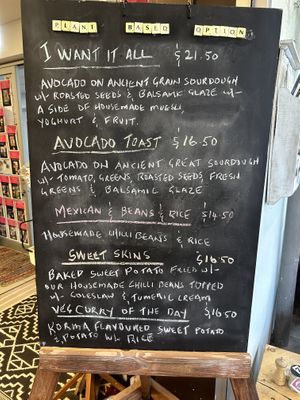 PLANT BASED OPTION
I WANT IT ALL $21.50
AVOCADO ON ANCIENT GRAIN SOURDOUGH
w/- ROASTED SEEDS & BALSAMIC GLAZE w/-
A SIDE OF HOUSEMADE MUESLI
YOGHURT & FRUIT.
AVOCADO TOAST $16.50
AVOCADO ON ANCIENT GREAT SOURDOUGH
w/- TOMATO, GREENS, ROASTED SEEDS, FRESH
GREENS & BALSAMIC GLAZE
MEXICAN & BEANS & RICE $14.50
HOUSEMADE CHILLI BEANS & RICE
SWEET SKINS $16.50
BAKED SWEET POTATO FRIED w/-
OUR HOUSEMADE CHILLI BEANS TOPPED
w/- COLESLAW & TUMERIC CREAM
VEG CURRY OF THE DAY $16.50
KORMA FLAVOURED SWEET POTATO
& POTATO W/- RICE